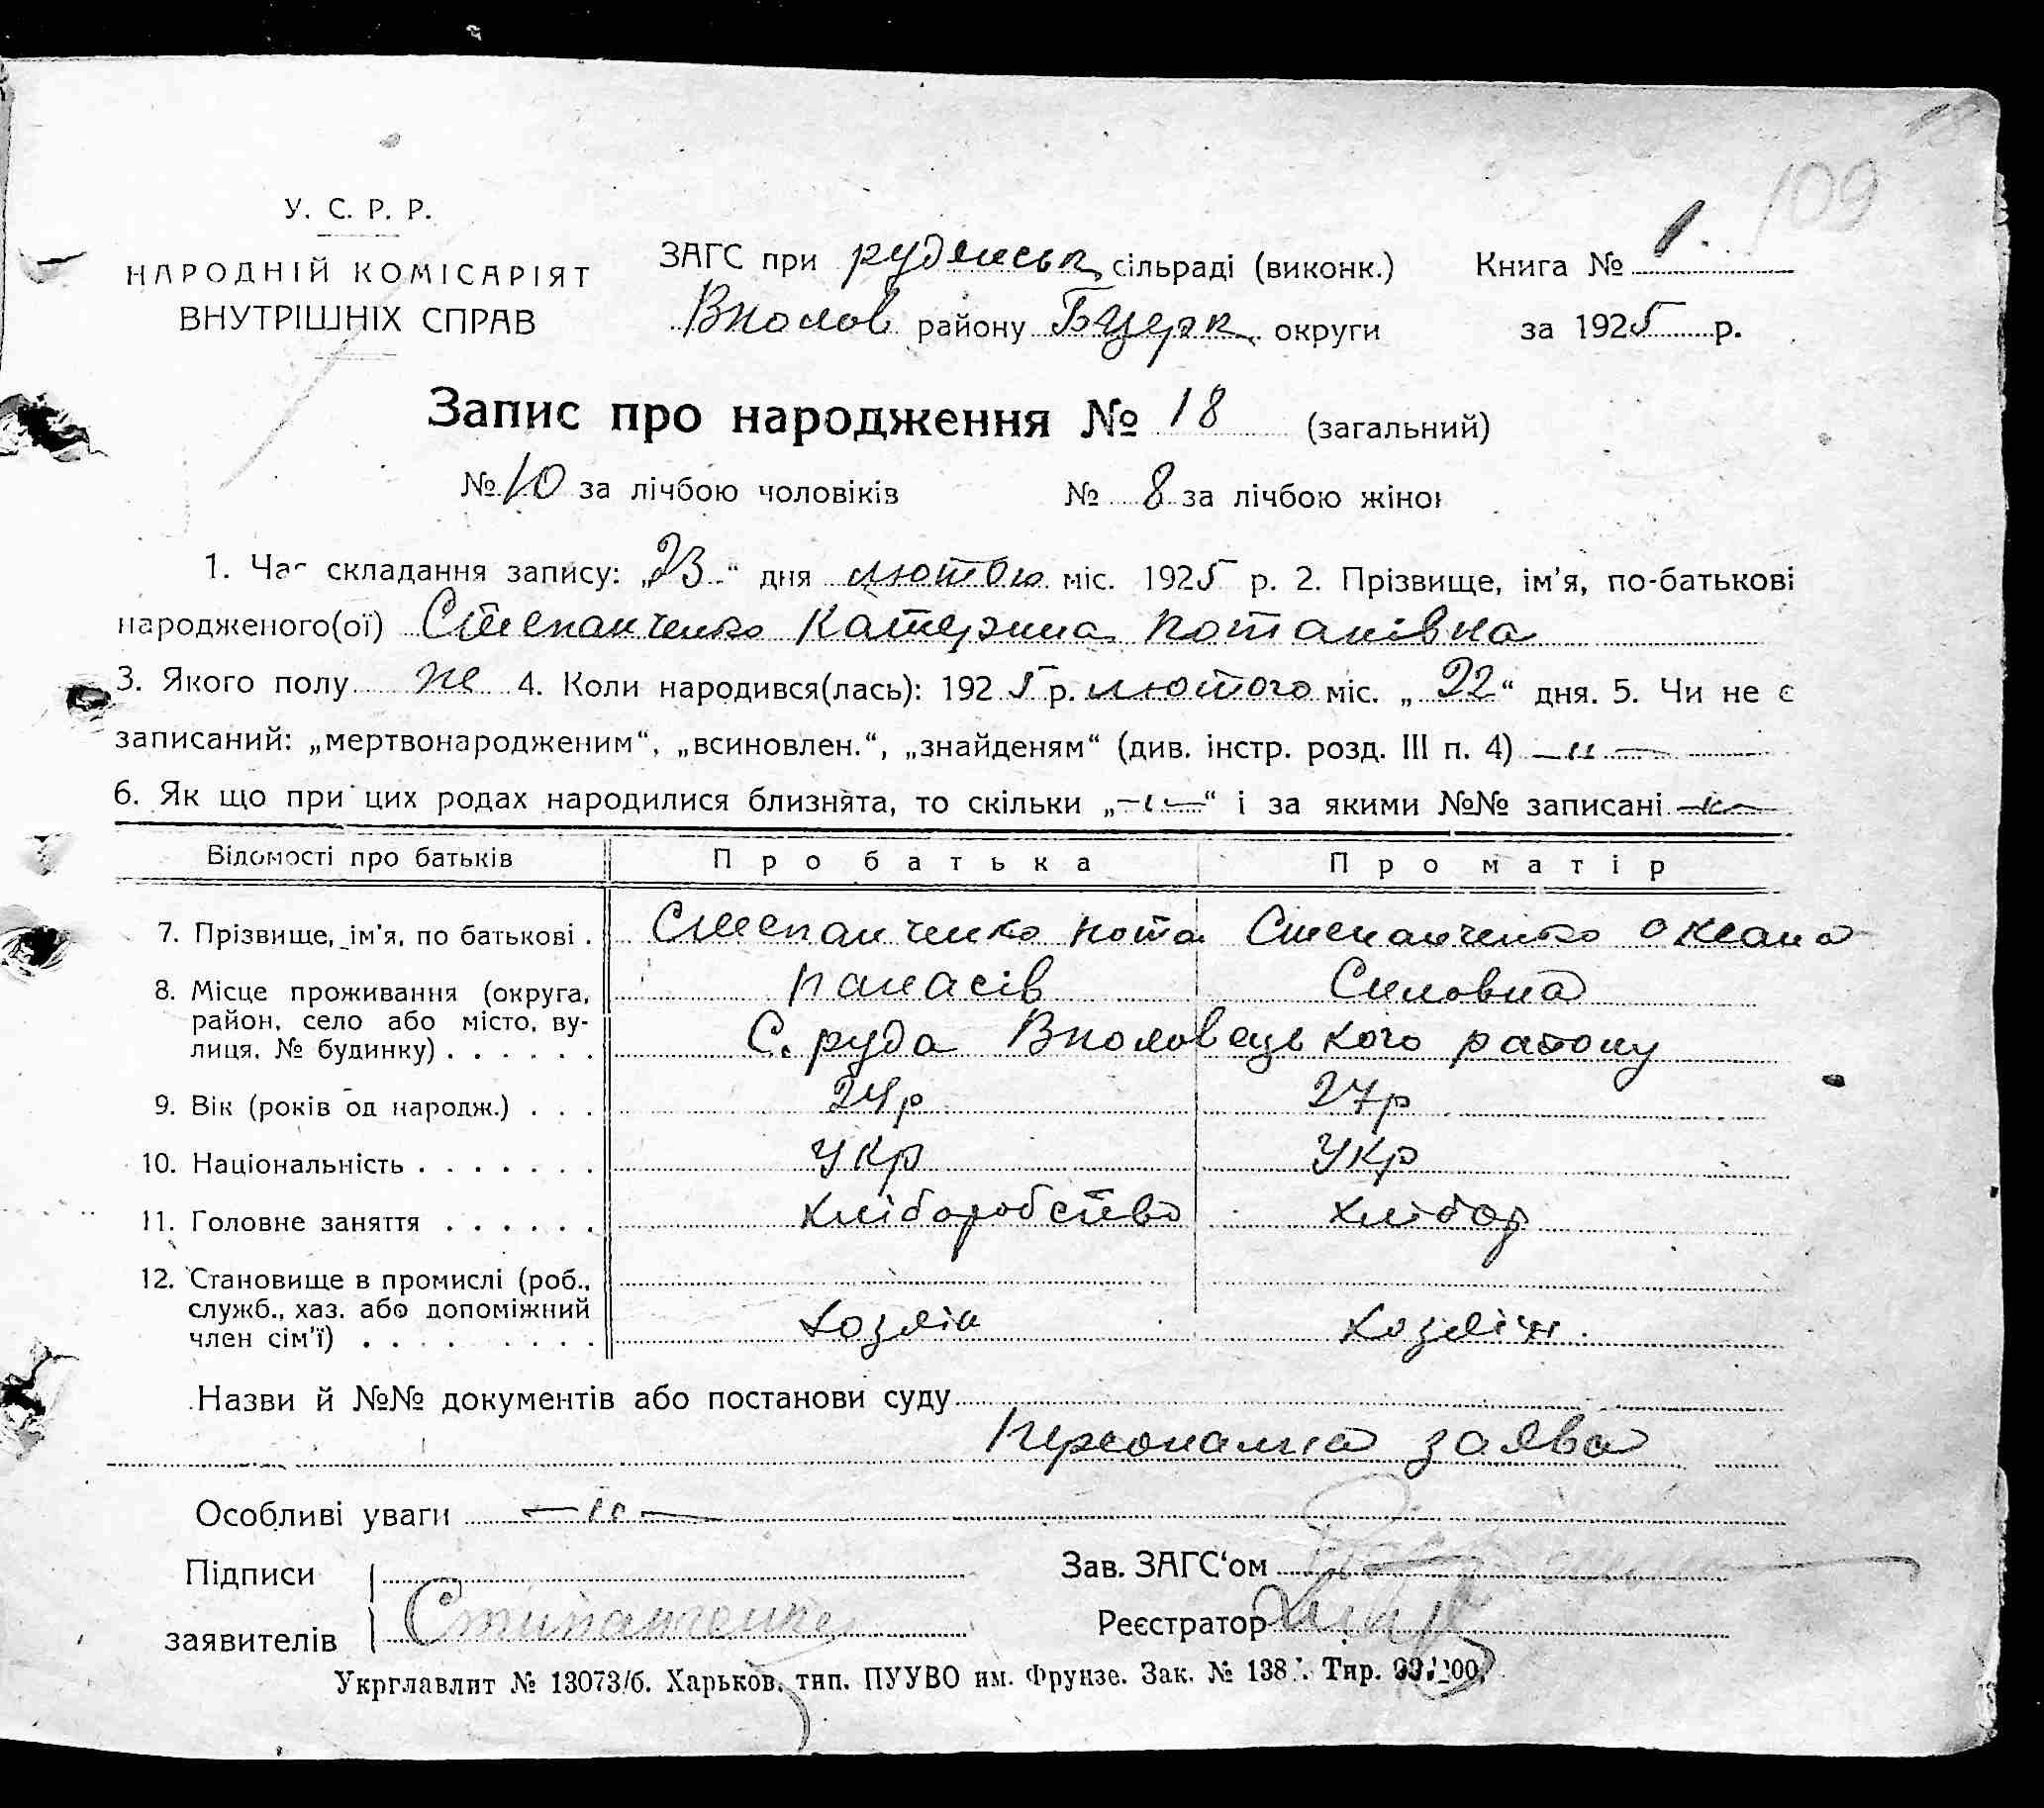 109
У. С. Р. Р.
НАРОДНІЙ КОМІСАРІЯТ
ВНУТРІШНІХ СПРАВ
ЗАГС при руденськ сільраді (виконк.)
Вполов району Бцерк округи
Книга № 1.
за 1925 р.
Запис про народження № 18 (загальний)
№ 10 за лічбою чоловіків № 8 за лічбою жінок
1. Час складання запису: „23“ дня лютого міс. 1925 р. 2. Прізвище, ім'я, по-батькові
народженого(ої) Степанченко Катерина Потапівна
3. Якого полу же 4. Коли народився(лась): 1925 р. лютого міс. „22“ дня. 5. Чи не є
записаний: „мертвонародженим“, „всиновлен.“, „знайденям“ (див. інстр. розд. III п. 4) —„—
6. Як що при цих родах народилися близнята, то скільки „—„—“ і за якими №№ записані —„—
Відомості про батьків Про батька Про матір
7. Прізвище, ім'я, по батькові . Степанченко Пота Степанченко Оксана
Панасів Силовна
8. Місце проживання (округа, район, село або місто, ву-
лиця, № будинку) . . . . . . С. руда Вполовецького району
9. Вік (років од народж.) . . . 24р 27р
10. Національність . . . . . . . Укр Укр
11. Головне заняття . . . . . . Хліборобство Хлібор
12. Становище в промислі (роб.,
служб., хаз. або допоміжний
член сім'ї) Хозяін
Назви й №№ документів або постанови суду
Персонална заява
Особливі уваги —„—
Підписи
заявителів Стипанченко
Зав. ЗАГС'ом
Реєстратор
Укрглавлит № 13073/б. Харьков, тип. ПУУВО им. Фрунзе. Зак. № 138 Тир.